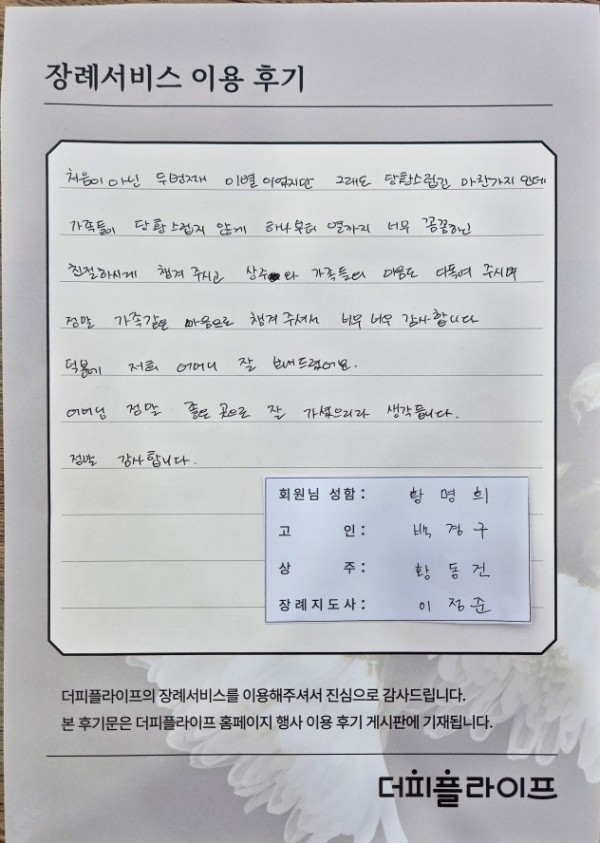 장례서비스 이용 후기
처음이 아닌 두번째 이별이였지만 그래도 당황스럽긴 마찬가지 인데
가족들이 당황스럽지 않게 하나부터 열까지 너무 꼼꼼하신
친절하시게 챙겨 주시고 상주와 가족들의 마음도 다독여 주시며
정말 가족같은 마음으로 챙겨 주셔서 너무 너무 감사합니다
덕분에 저희 어머니 잘 보내드렸어요.
어머님 정말 좋은 곳으로 잘 가셨으리라 생각듭니다.
정말 감사합니다.
회원님 성함 : 황명희
고 인 : 백경구
상 주 : 황동건
장례지도사 : 이정준
더피플라이프의 장례서비스를 이용해주셔서 진심으로 감사드립니다.
본 후기문은 더피플라이프 홈페이지 행사 이용 후기 게시판에 기재됩니다.
더피플라이프